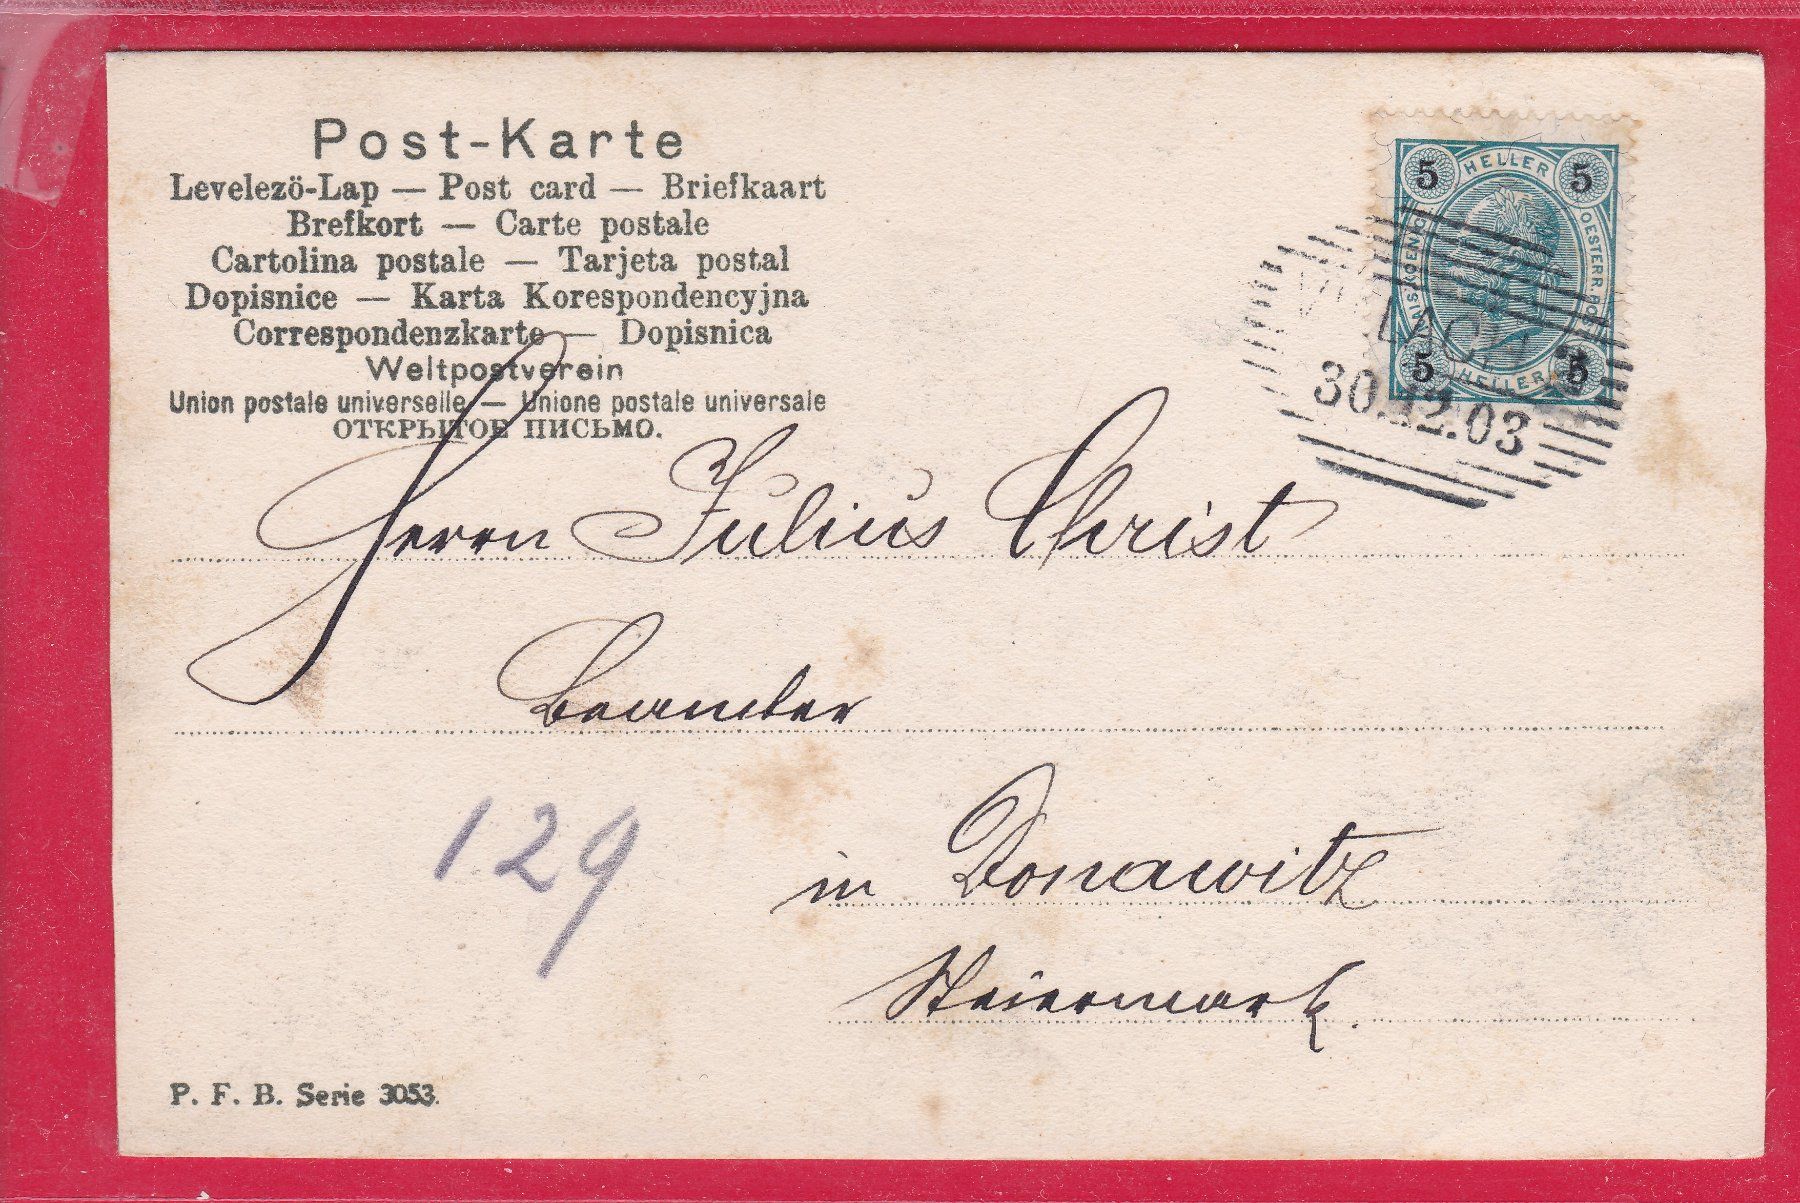 Post-Karte
Levelezö-Lap — Post card — Briefkaart
Brefkort — Carte postale
Cartolina postale — Tarjeta postal
Dopisnice — Karta Korespondencyjna
Correspondenzkarte — Dopisnica
Weltpostverein
Union postale universelle — Unione postale universale
ОТКРЫТОЕ ПИСЬМО.
5 HELLER 5
OESTERR. POST
5 HELLER 5
30.12.03
Herrn Julius Christ
Beamter
129
in Donawitz
Steiermark.
P. F. B. Serie 3053.